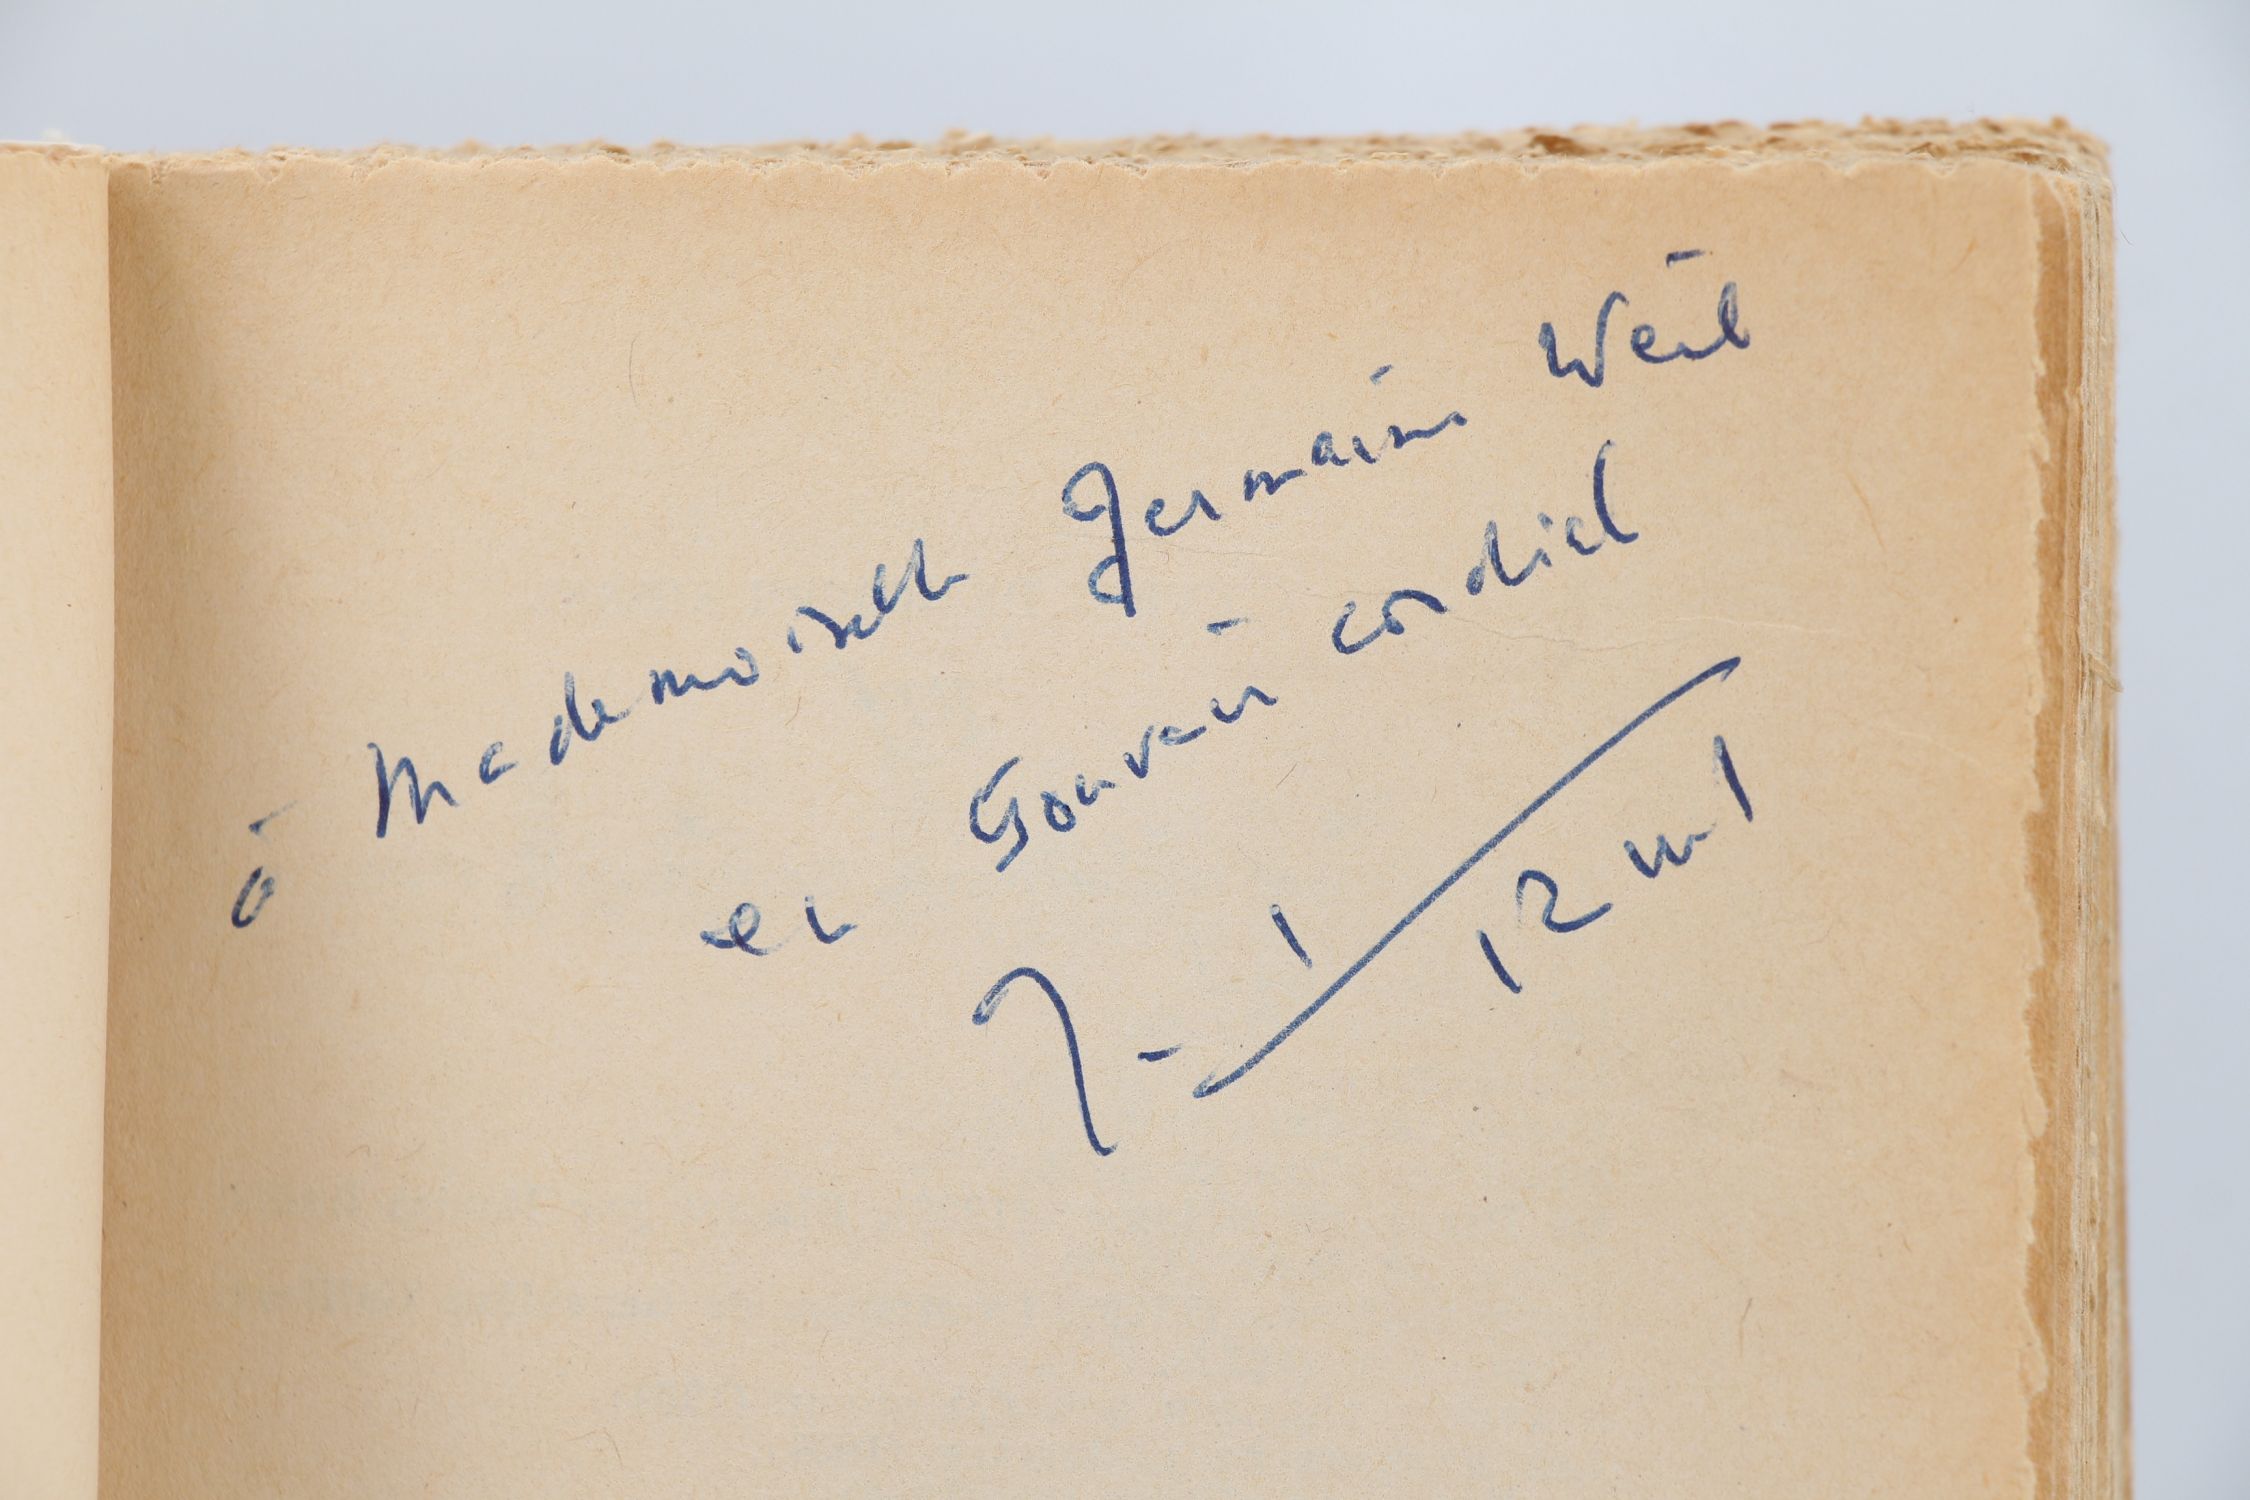 à Mademoiselle Germaine Weil
en Souvenir cordial
12